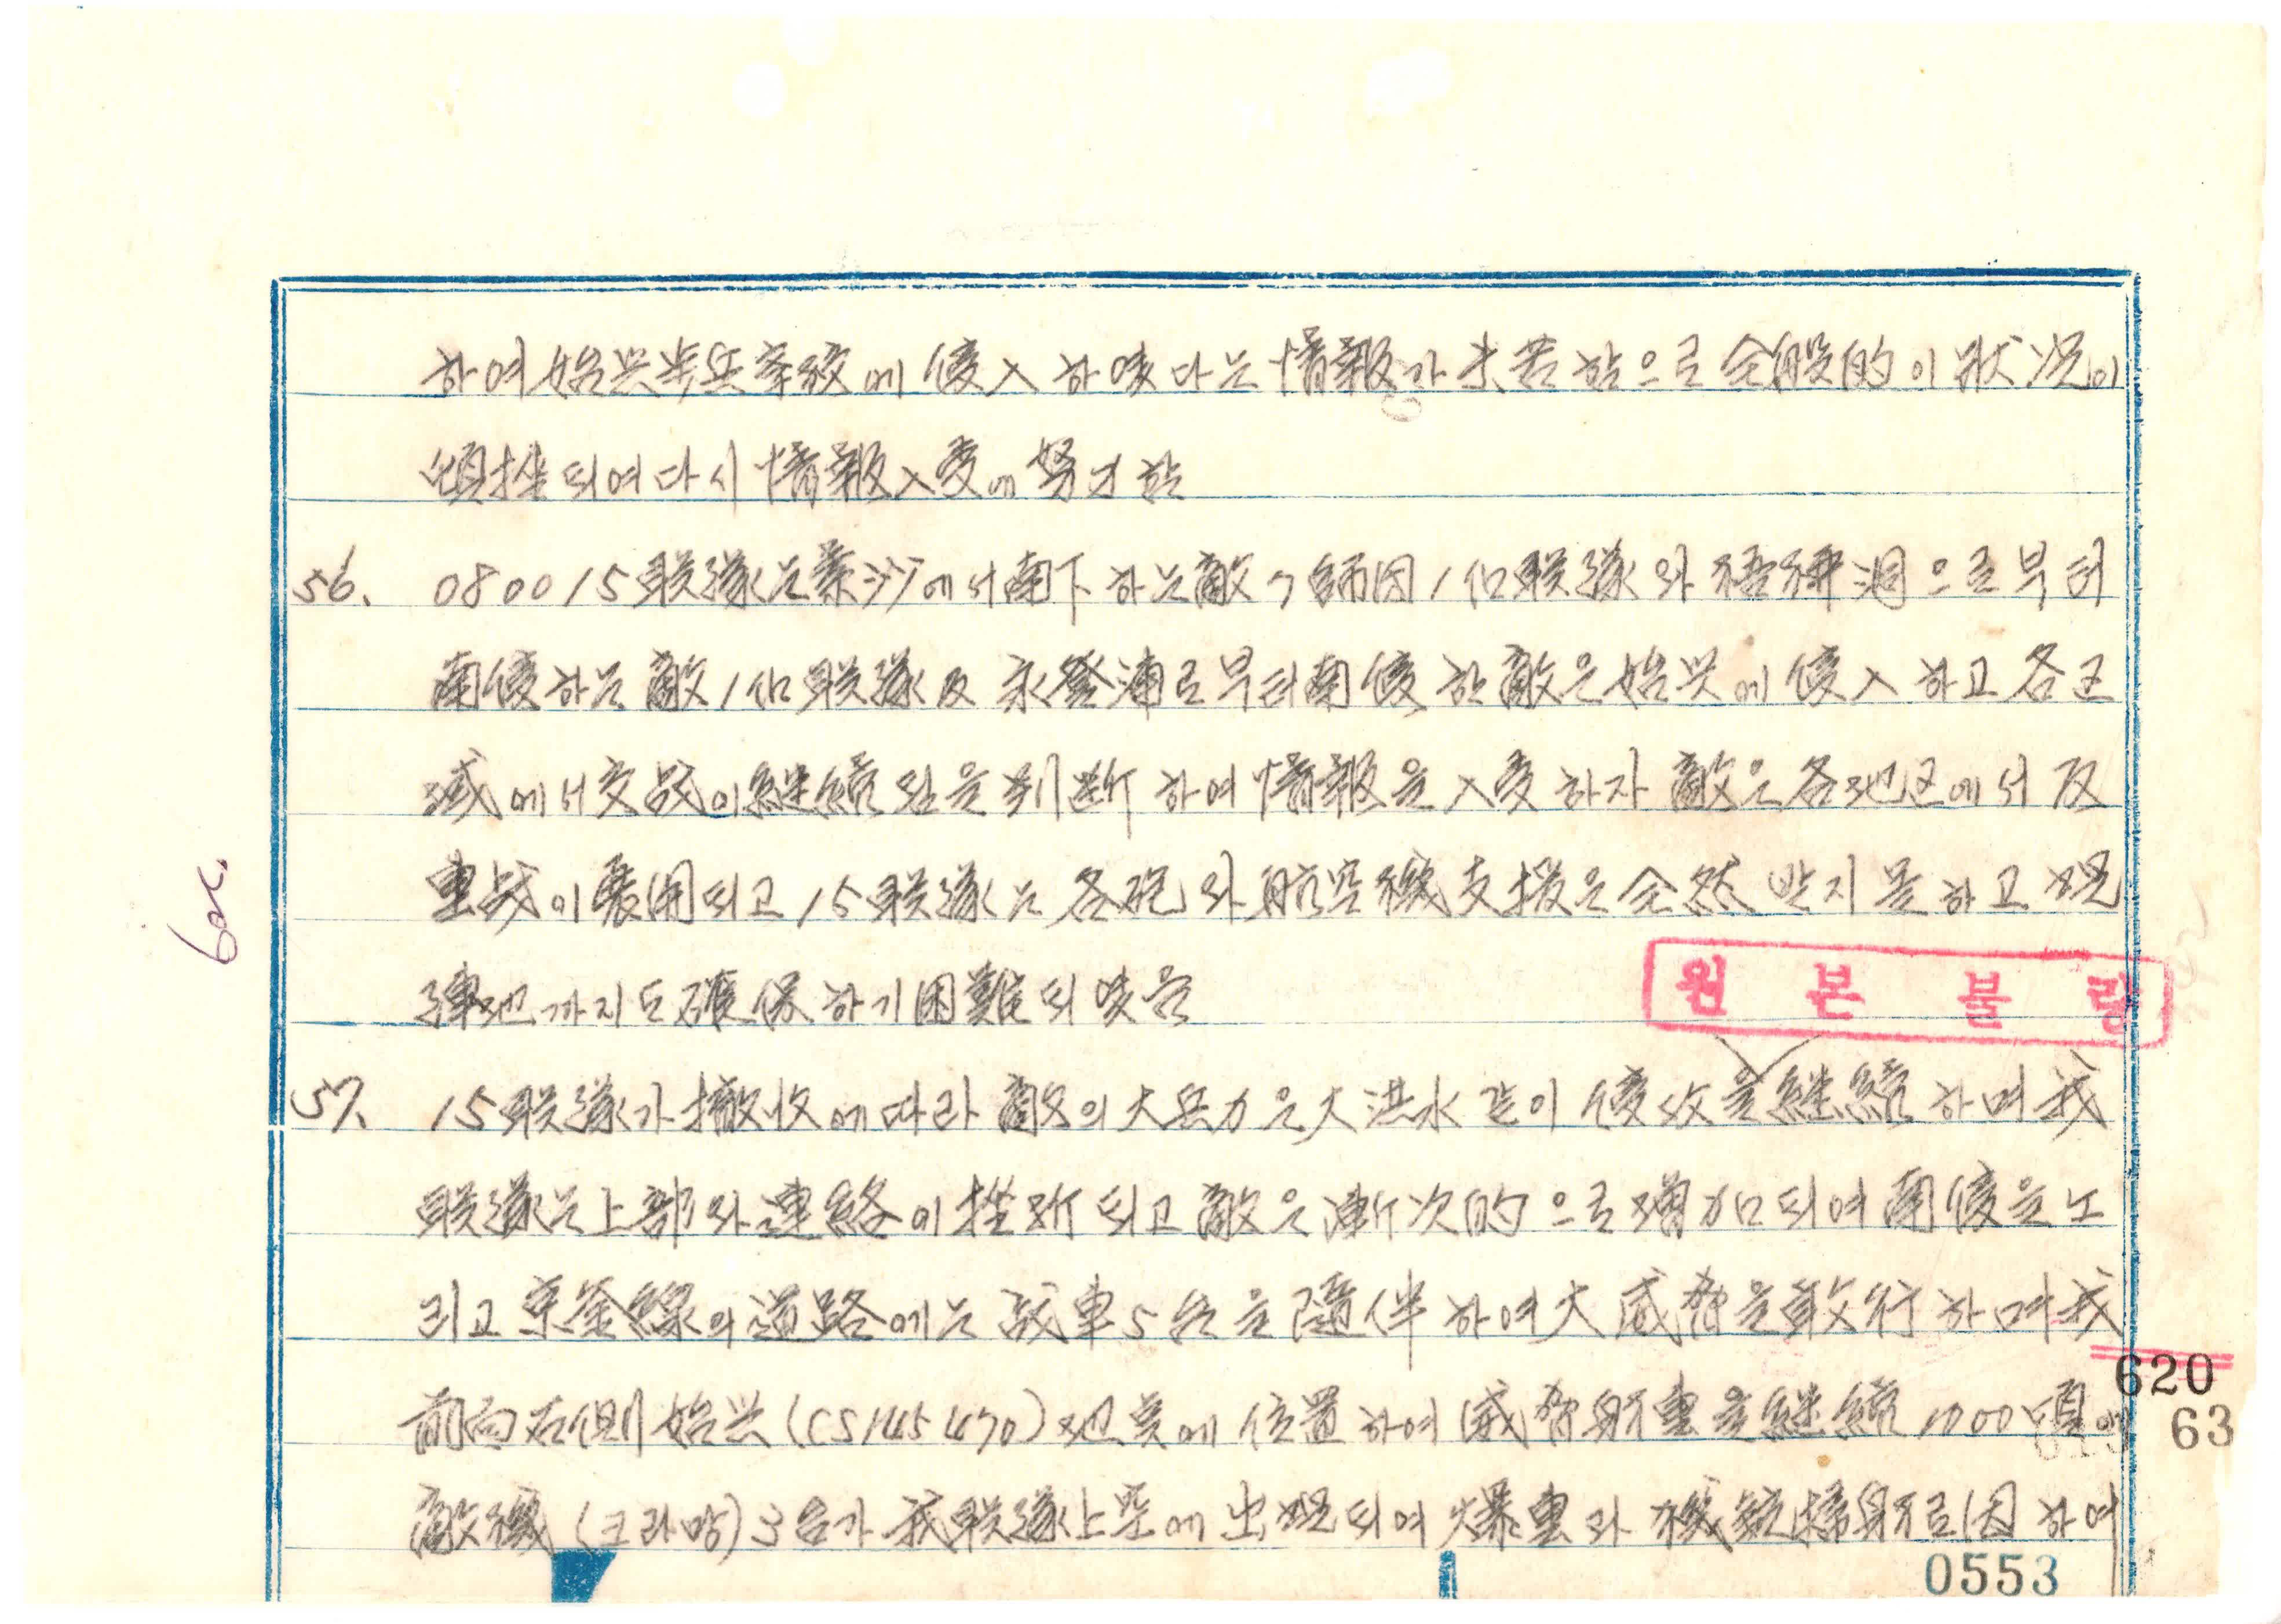 하여 始兴步兵学校에 侵入 하였다는 情報가 末着함으로 全般的이 状况이
頓挫되여 다시 情報入手에 努力함
56. 0800 15联隊는 素沙에서 南下 하는 敵 7师团 1个联隊와 梧柳洞으로부터
南侵하는 敵 1个联隊 及 永登浦로부터 南侵한 敵은 始兴에 侵入하고 各区
域에서 交战이 継続됨을 判断하여 情報을 入手하자 敵은 各地区에서 反
擊战이 展開되고 15联隊는 各砲와 航空機支援은 全然 받지 못하고 現
陣地까지도 確保하기 困難되였음
원본불량
57. 15联隊가 撤收에 따라 敵의 大兵力은 大洪水같이 侵攻을 継続하며 我
联隊는 上部와 連絡이 挫折되고 敵은 漸次的으로 增加되여 南侵을 노
리고 京釜線의 道路에는 战車 5台을 隨伴하여 大威脅을 敢行하며 我
前面右側 始兴(CS145470)地点에 位置하여 威脅射擊을 継続 1000頃
敵機(크라망)3台가 我联隊上空에 出現되여 爆擊과 機銃掃射로 因하여
620
63
0553